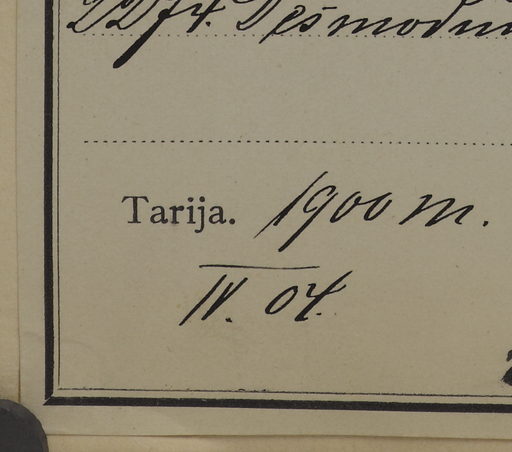 2274. Desmodium
Tarija. 1900 m.
IV. 04.